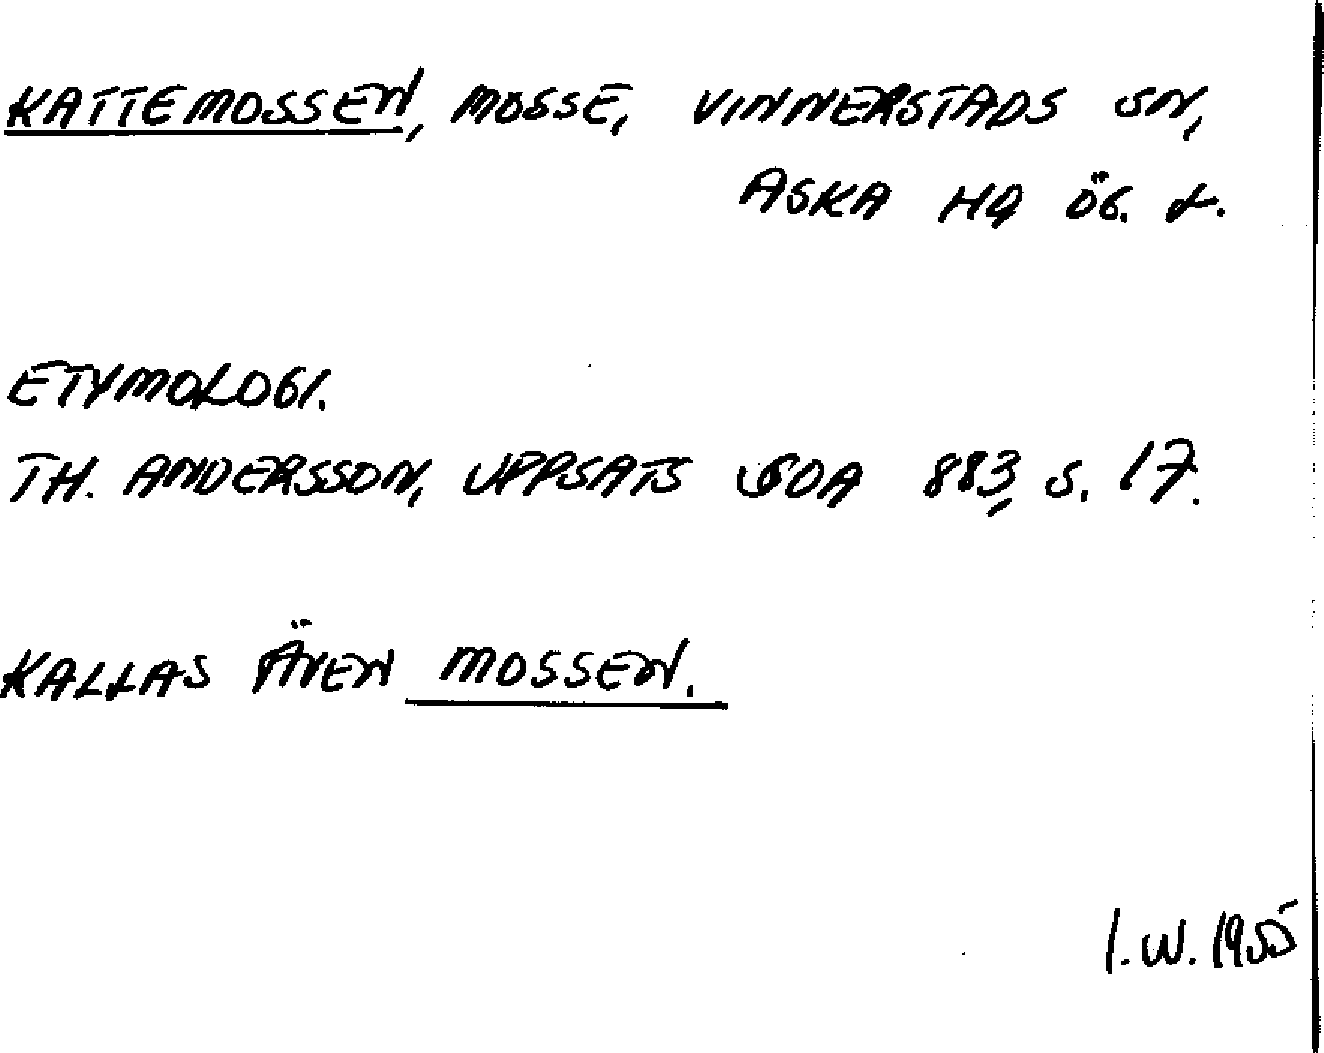 KATTEMOSSEN, MOSSE, VINNERSTADS SN,
ASKA HD ÖG. L.
ETYMOLOGI.
TH. ANDERSSON, UPPSATS SOA 883, S. 17.
KALLAS ÄVEN MOSSEN.
I.W. 1955